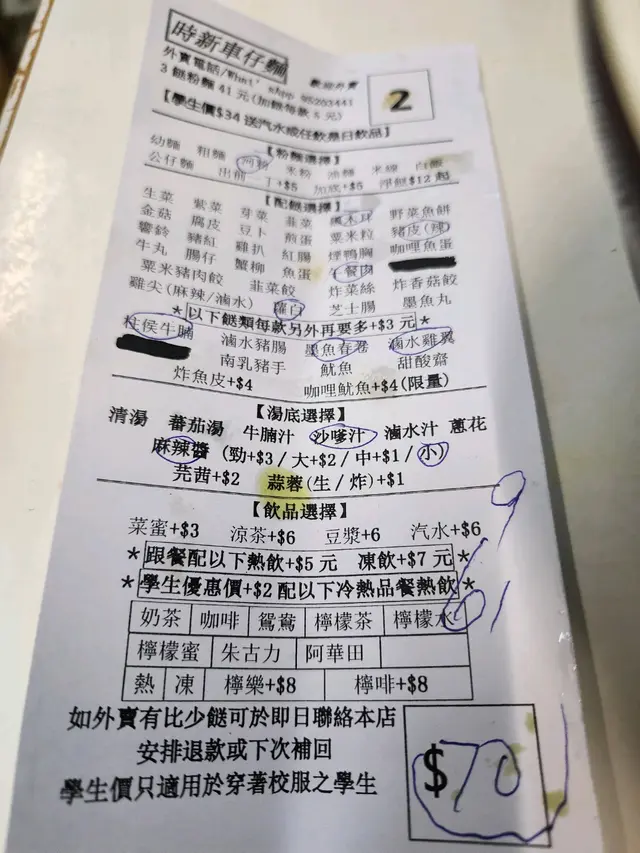 時新車仔麵
外賣電話/What' sApp 95203441 歡迎外賣
3 餸粉麵 41 元(加餸每款 5 元)
2
【學生價$34 送汽水或任飲是日飲品】
【粉麵選擇】
幼麵 粗麵 河粉 米粉 油麵 米線 白飯
公仔麵 出前一丁+$5 加底+$5 淨餸$12 起
【配餸選擇】
生菜 紫菜 芽菜 韭菜 黑木耳 野菜魚餅
金菇 腐皮 豆卜 煎蛋 粟米粒 豬皮(辣)
響鈴 豬紅 雞扒 紅腸 煙鴨胸 咖哩魚蛋
牛丸 腸仔 蟹柳 魚蛋 午餐肉
粟米豬肉餃 韭菜餃 炸菜絲 炸香菇餃
雞尖(麻辣/滷水) 蘿白 芝士腸 墨魚丸
*以下餸類每款另外再要多+$3 元*
柱侯牛腩 滷水豬腸 墨魚春卷 滷水雞翼
南乳豬手 魷魚 甜酸齋
炸魚皮+$4 咖哩魷魚+$4(限量)
【湯底選擇】
清湯 蕃茄湯 牛腩汁 沙嗲汁 滷水汁 蔥花
麻辣醬 (勁+$3 / 大+$2 / 中+$1 / 小)
芫茜+$2 蒜蓉(生 / 炸)+$1
【飲品選擇】
菜蜜+$3 涼茶+$6 豆漿+6 汽水+$6
*跟餐配以下熱飲+$5 元 凍飲+$7 元*
*學生優惠價+$2 配以下冷熱品餐熱飲*
奶茶 咖啡 鴛鴦 檸檬茶 檸檬水
檸檬蜜 朱古力 阿華田
熱 凍 檸樂+$8 檸啡+$8
如外賣有比少餸可於即日聯絡本店
安排退款或下次補回
學生價只適用於穿著校服之學生
$70